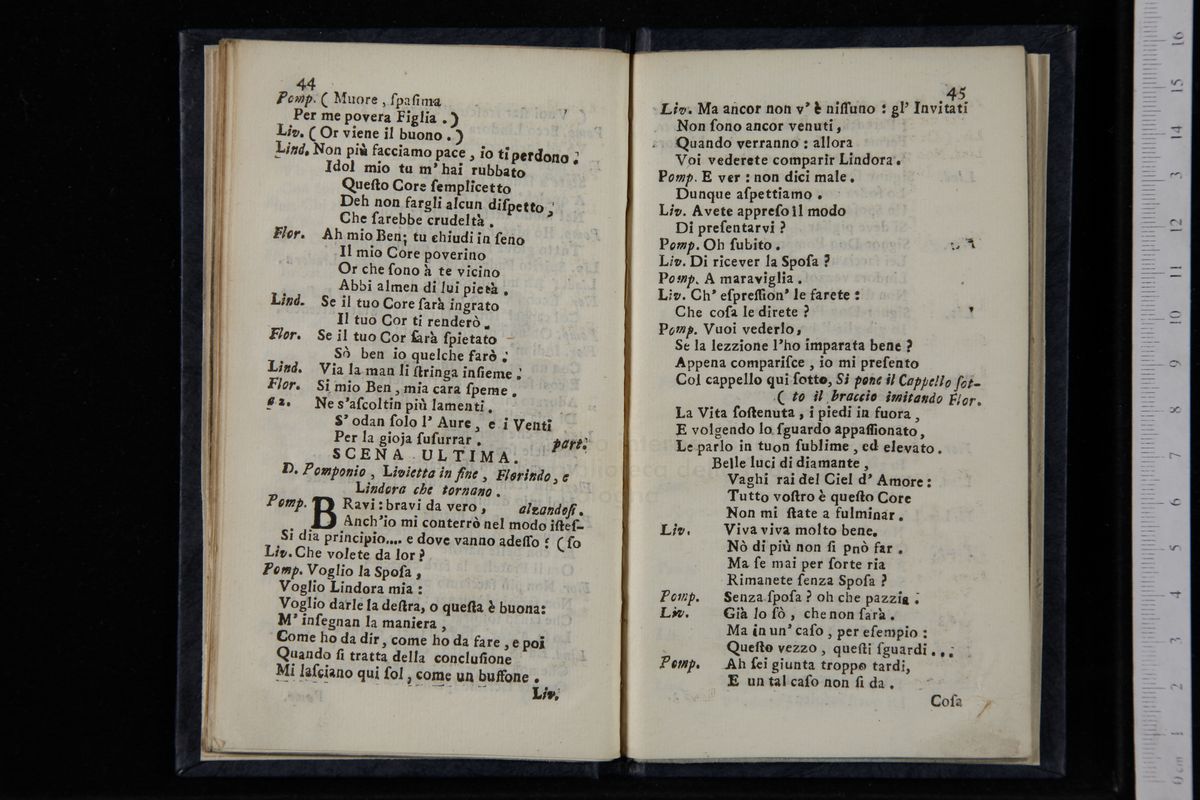 44
Pomp. ( Muore, ſpaſima
Per me povera Figlia. )
Liv. ( Or viene il buono. )
Lind. Non più facciamo pace, io ti perdono.
Idol mio tu m' hai rubbato
Queſto Core ſemplicetto
Deh non fargli alcun diſpetto,
Che ſarebbe crudeltà.
Flor. Ah mio Ben; tu chiudi in ſeno
Il mio Core poverino
Or che ſono à te vicino
Abbi almen di lui pietà.
Lind. Se il tuo Core ſarà ingrato
Il tuo Cor ti renderò.
Flor. Se il tuo Cor ſarà ſpietato
Sò ben io quelche farò.
Lind. Via la man li ſtringa inſieme.
Flor. Si mio Ben, mia cara ſpeme.
a 2. Ne s'aſcoltin più lamenti.
S' odan ſolo l' Aure, e i Venti
Per la gioja ſuſurrar. part.
SCENA ULTIMA.
D. Pomponio, Livietta in fine, Florindo, e
Lindora che tornano.
Pomp. BRavi: bravi da vero, alzandoſi.
Anch'io mi conterrò nel modo iſteſ-
Si dia principio.... e dove vanno adeſſo? (ſo
Liv. Che volete da lor?
Pomp. Voglio la Spoſa,
Voglio Lindora mia:
Voglio darle la deſtra, o queſta è buona:
M' inſegnan la maniera,
Come ho da dir, come ho da fare, e poi
Quando ſi tratta della concluſione
Mi laſciano qui ſol, come un buffone.
Liv.
45
Liv. Ma ancor non v' è niſſuno: gl' Invitati
Non ſono ancor venuti,
Quando verranno: allora
Voi vederete comparir Lindora.
Pomp. E ver: non dici male.
Dunque aſpettiamo.
Liv. Avete appreſo il modo
Di preſentarvi?
Pomp. Oh ſubito.
Liv. Di ricever la Spoſa?
Pomp. A maraviglia.
Liv. Ch' eſpreſſion' le farete:
Che coſa le direte?
Pomp. Vuoi vederlo,
Se la lezzione l'ho imparata bene?
Appena compariſce, io mi preſento
Col cappello qui ſotto, Si pone il Cappello ſot-
( to il braccio imitando Flor.
La Vita ſoſtenuta, i piedi in fuora,
E volgendo lo ſguardo appaſſionato,
Le parlo in tuon ſublime, ed elevato.
Belle luci di diamante,
Vaghi rai del Ciel d' Amore:
Tutto voſtro è queſto Core
Non mi ſtate a fulminar.
Liv. Viva viva molto bene.
Nò di più non ſi pnò far.
Ma ſe mai per ſorte ria
Rimanete ſenza Spoſa?
Pomp. Senza ſpoſa? oh che pazzia.
Liv. Già lo ſò, che non ſarà.
Ma in un' caſo, per eſempio:
Queſto vezzo, queſti ſguardi...
Pomp. Ah ſei giunta troppo tardi,
E un tal caſo non ſi da.
Coſa
0 cm 1 2 3 4 5 6 7 8 9 10 11 12 13 14 15 16